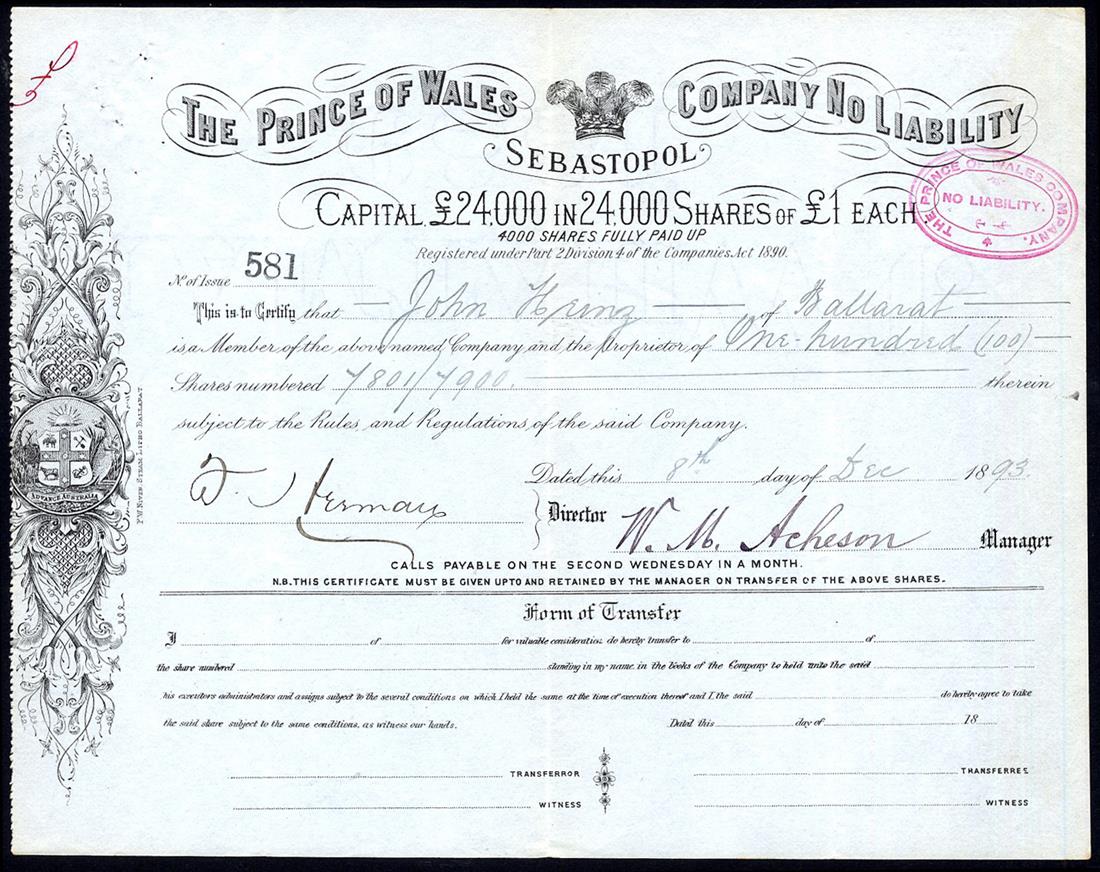 THE PRINCE OF WALES COMPANY NO LIABILITY
SEBASTOPOL
CAPITAL £24,000 IN 24,000 SHARES OF £1 EACH
4000 SHARES FULLY PAID UP
Registered under Part 2 Division 4 of the Companies Act 1890.
THE PRINCE OF WALES COMPANY.
NO LIABILITY.
No. of Issue 581
This is to Certify that John Heinz of Ballarat
is a Member of the above named Company and the Proprietor of One-hundred (100)
Shares numbered 7801/7900. therein
subject to the Rules and Regulations of the said Company.
Dated this 8th day of Dec 1893.
Director W. M. Acheson Manager
CALLS PAYABLE ON THE SECOND WEDNESDAY IN A MONTH.
N.B. THIS CERTIFICATE MUST BE GIVEN UPTO AND RETAINED BY THE MANAGER ON TRANSFER OF THE ABOVE SHARES.
Form of Transfer
I of for valuable consideration, do hereby transfer to of
the share numbered standing in my name in the books of the Company to hold unto the said
his executors administrators and assigns subject to the several conditions on which I held the same at the time of execution thereof and I, the said do hereby agree to take
the said share subject to the same conditions, as witness our hands. Dated this day of 18
TRANSFERROR THANSFERRES
WITNESS WITNESS
ADVANCE AUSTRALIA
F.W. NIVEN STEAM LITHO BALLARAT